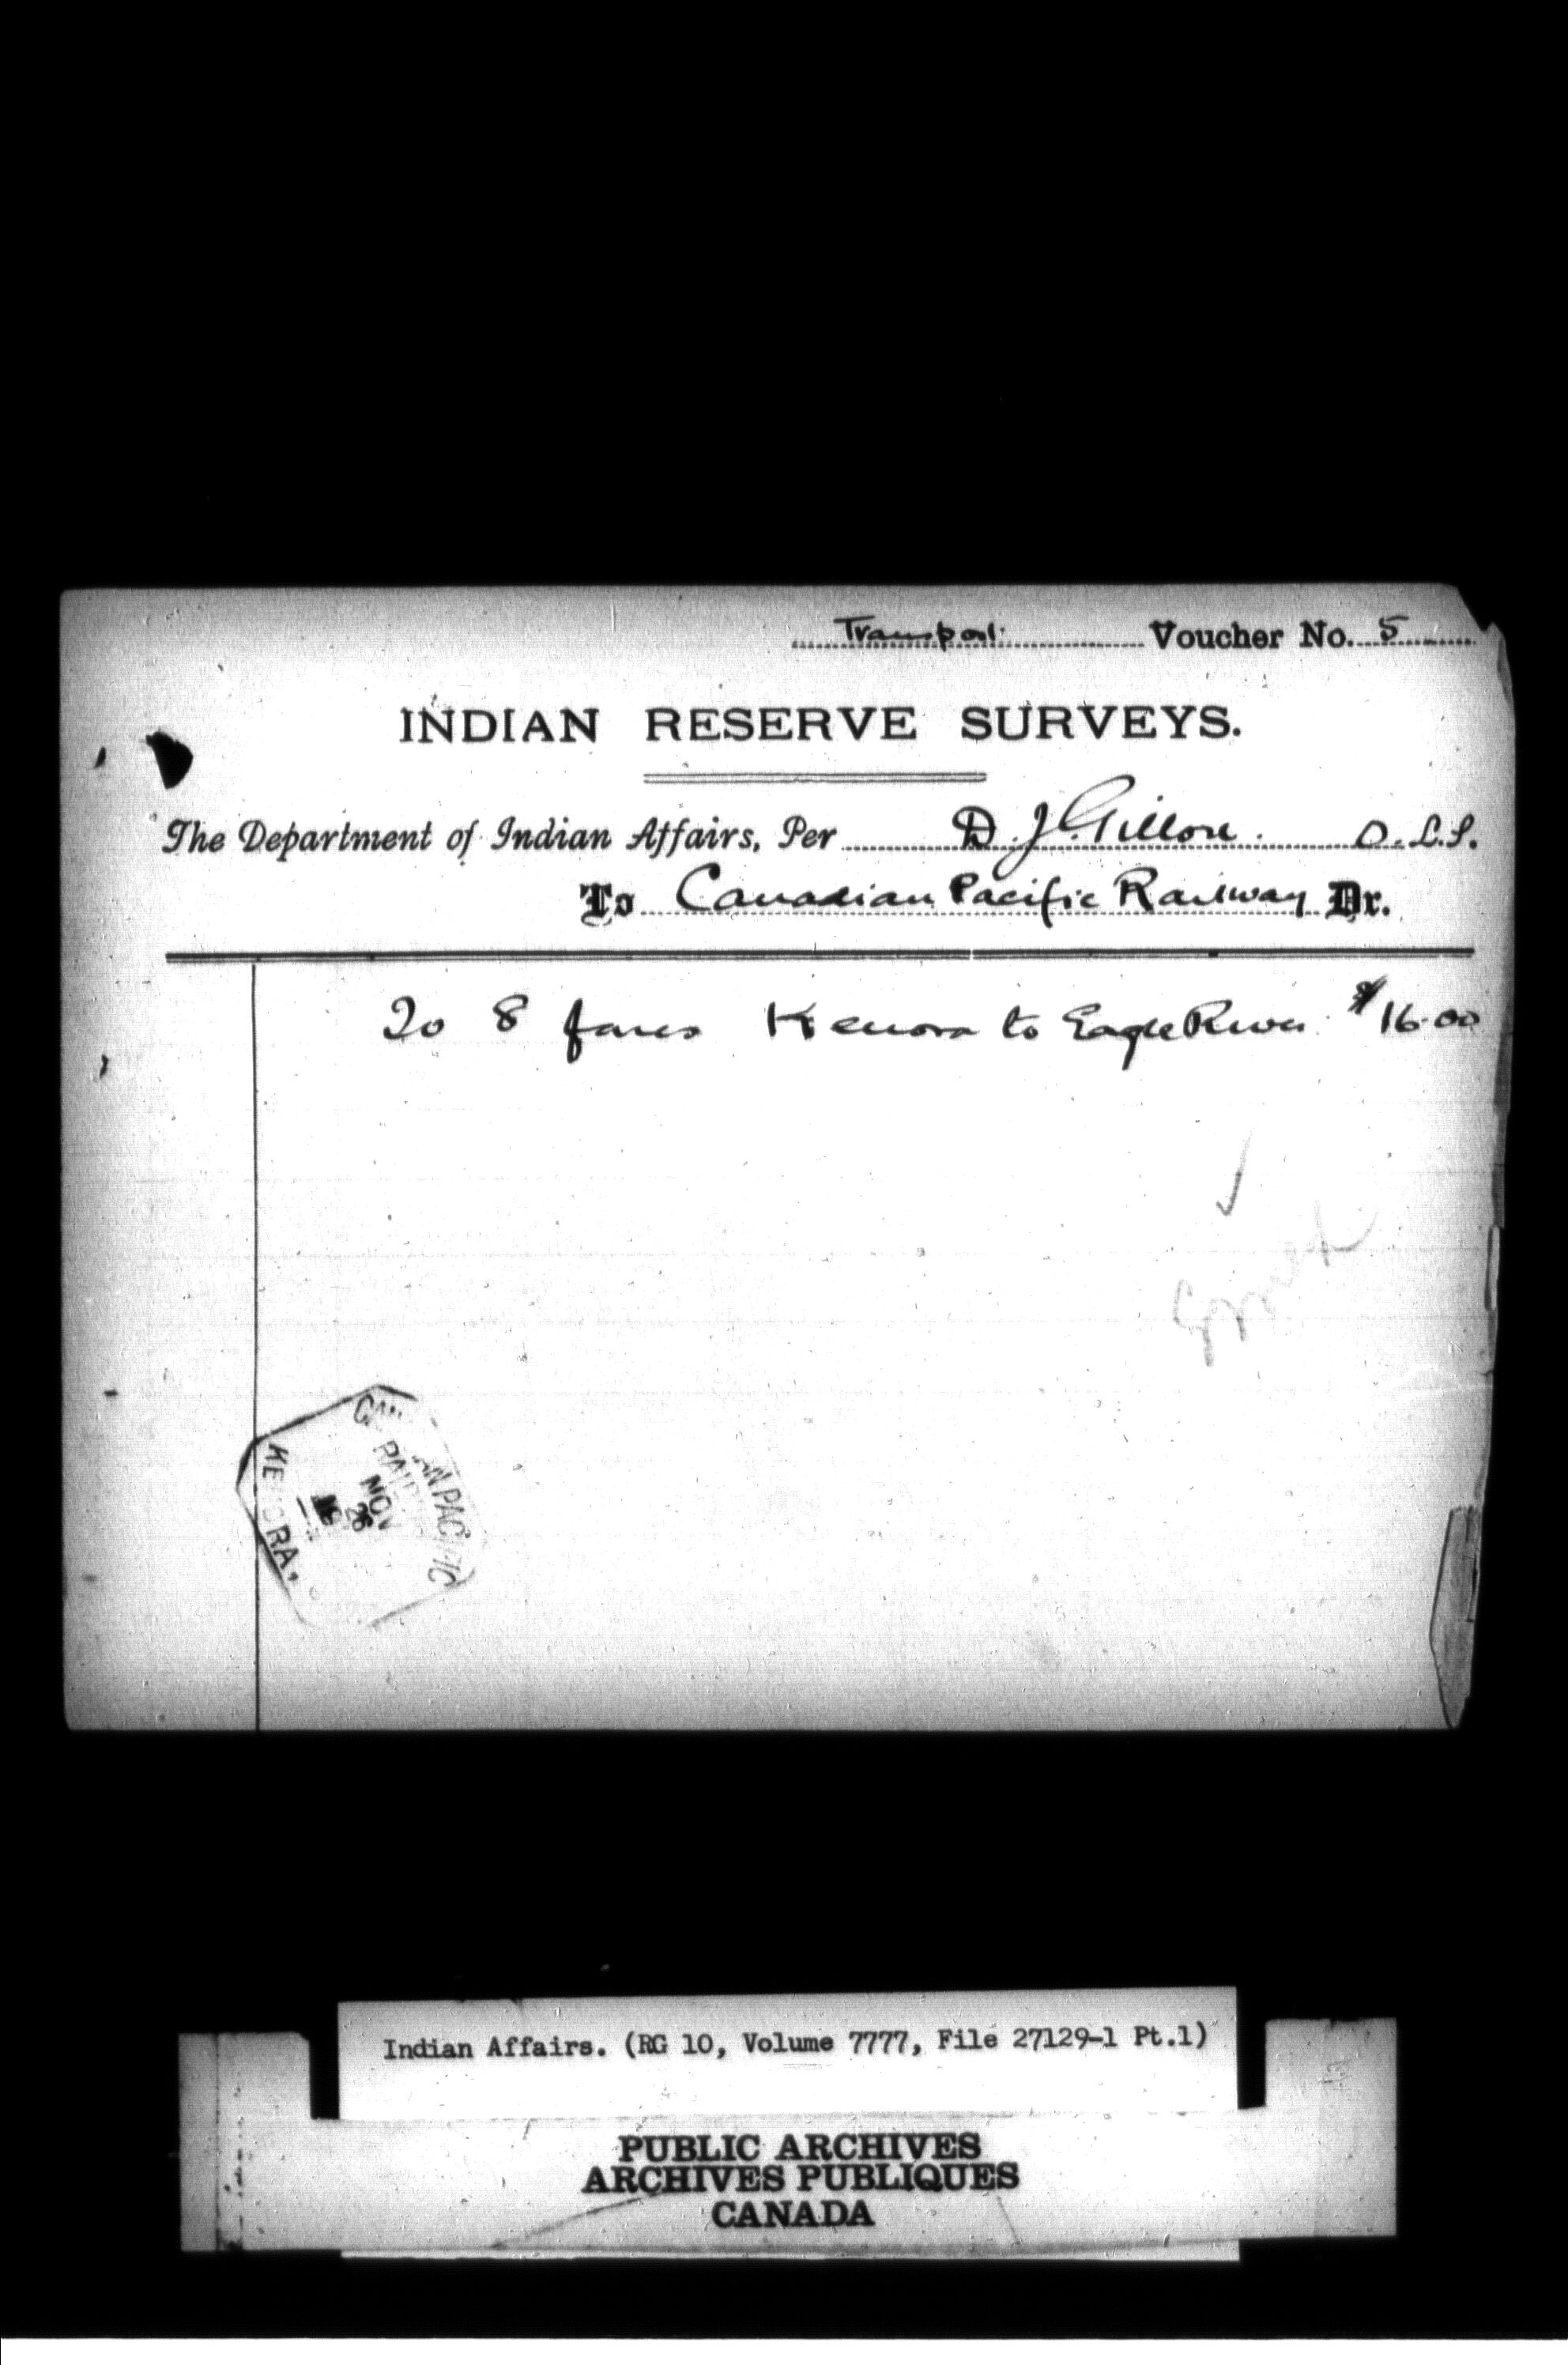 Transport Voucher No. 5
INDIAN RESERVE SURVEYS.
The Department of Indian Affairs, Per D. J. Gillon. O.L.S.
To Canadian Pacific Railway Dr.
To 8 fares Kenora to Eagle River $16.00
KENORA,
NOV
26
Indian Affairs. (RG 10, Volume 7777, File 27129-1 Pt.1)
PUBLIC ARCHIVES
ARCHIVES PUBLIQUES
CANADA